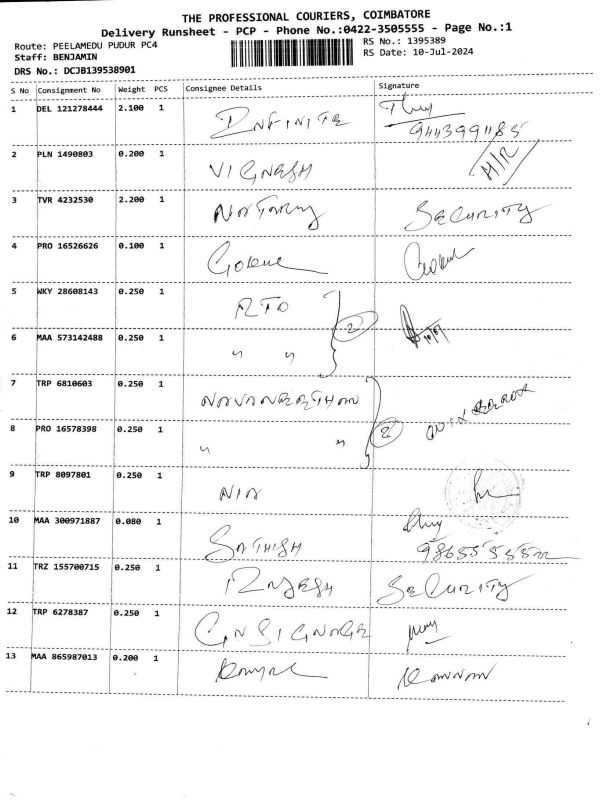 THE PROFESSIONAL COURIERS, COIMBATORE
Delivery Runsheet - PCP - Phone No.:0422-3505555 - Page No.:1
Route: PEELAMEDU PUDUR PC4
RS No.: 1395389
Staff: BENJAMIN
RS Date: 10-Jul-2024
DRS No.: DCJB139538901
S No Consignment No Weight PCS Consignee Details Signature
1 DEL 121278444 2.100 1 INFINITE
2 PLN 1490803 0.200 1 VIGNESH H/R
3 TVR 4232530 2.200 1 SECURITY
4 PRO 16526626 0.100 1 Gokul Gokul
5 WKY 28608143 0.250 1 RTO 2
6 MAA 573142488 0.250 1 " "
7 TRP 6810603 0.250 1 NAVANEETHAM 2
8 PRO 16578398 0.250 1 " "
9 TRP 8097801 0.250 1
10 MAA 300971887 0.080 1 SATHISH
11 TRZ 155700715 0.250 1 RAJESH SECURITY
12 TRP 6278387 0.250 1
13 MAA 865987013 0.200 1 Kannan